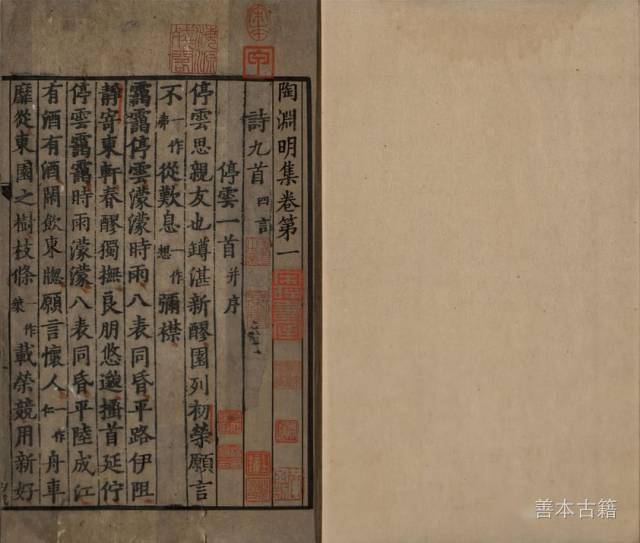 陶淵明集卷第一
詩九首 四言
停雲一首 并序
停雲思親友也罇湛新醪園列初榮願言
不一作弗從歎息一作想彌襟
靄靄停雲濛濛時雨八表同昏平路伊阻
靜寄東軒春醪獨撫良朋悠邈搔首延佇
停雲靄靄時雨濛濛八表同昏平陸成江
有酒有酒閒飲東牕願言懷人一作仁舟車
靡從東園之樹枝條一作葉載榮競用新好
善本古籍